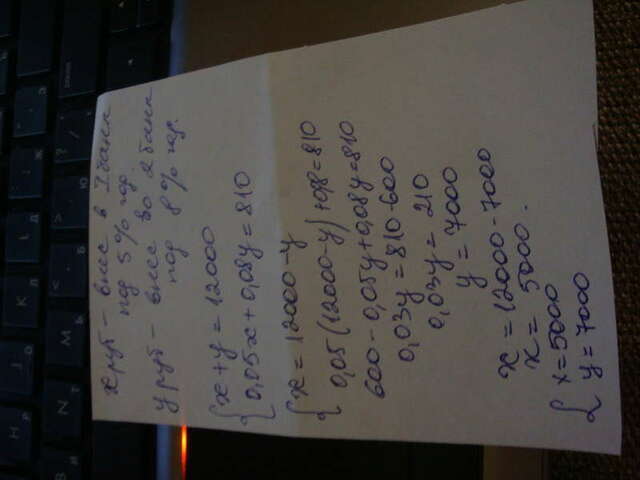 x руб - внес в I банк
под 5% год.
y руб - внес во 2 банк
под 8% год.
{ x + y = 12000
0,05x + 0,08y = 810
{ x = 12000 - y
0,05(12000-y) + 0,8 = 810
600 - 0,05y + 0,08y = 810
0,03y = 810-600
0,03y = 210
y = 7000
x = 12000 - 7000
x = 5000.
{ x = 5000
y = 7000